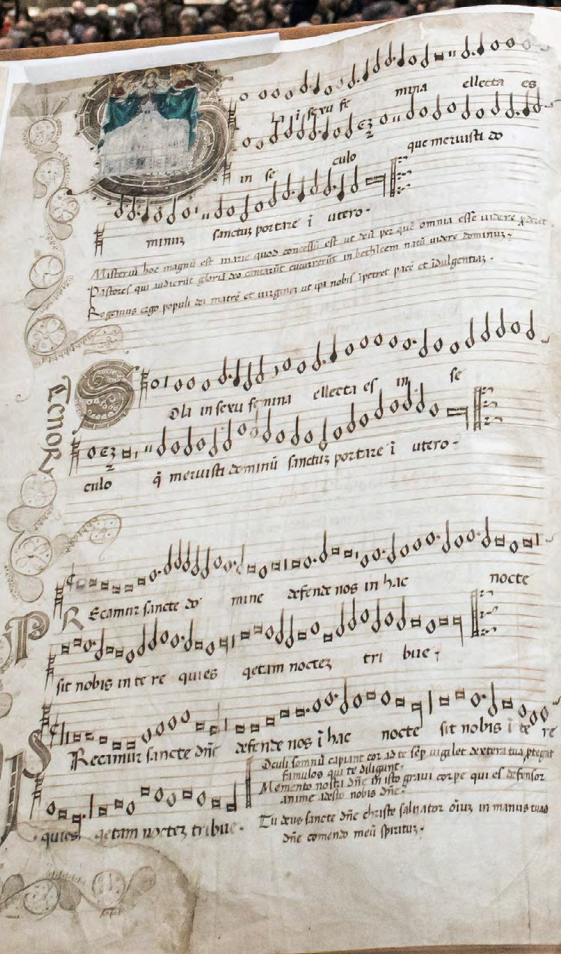 ola i sexu fe mina ellecta es
in se culo que meruisti do
minuz sanctuz portare i utero.
Misteriu hoc magnu est marie quod concessu est ut deu per que omnia esse videre
Pastores qui audierut gloria deo cantatut cucurrerut in bethleem natu videre dominuz.
Rogemus ergo populi dei matre et virgine ut ipa nobis ipetret pace et idulgentiaz.
Tenor
Ola in sexu femina ellecta es in se
culo q meruisti dominu sanctuz portare i utero.
PREcamur sancte do mine defende nos in hac nocte
sit nobis in te re quies qetam noctez tri bue
PRecamur sancte dne defende nos i hac nocte sit nobis i te re
quies qetam noctez tribue.
Oculi somnu capiant cor ad te sep vigilet dextera tua ptegat
famulos qui te diligunt.
Memento nostri dne in isto gravi corpe qui es defensor
anime adesto nobis dne.
Tu deus sancte dne christe salvator oium in manus tuas
dne comendo meu spirituz.